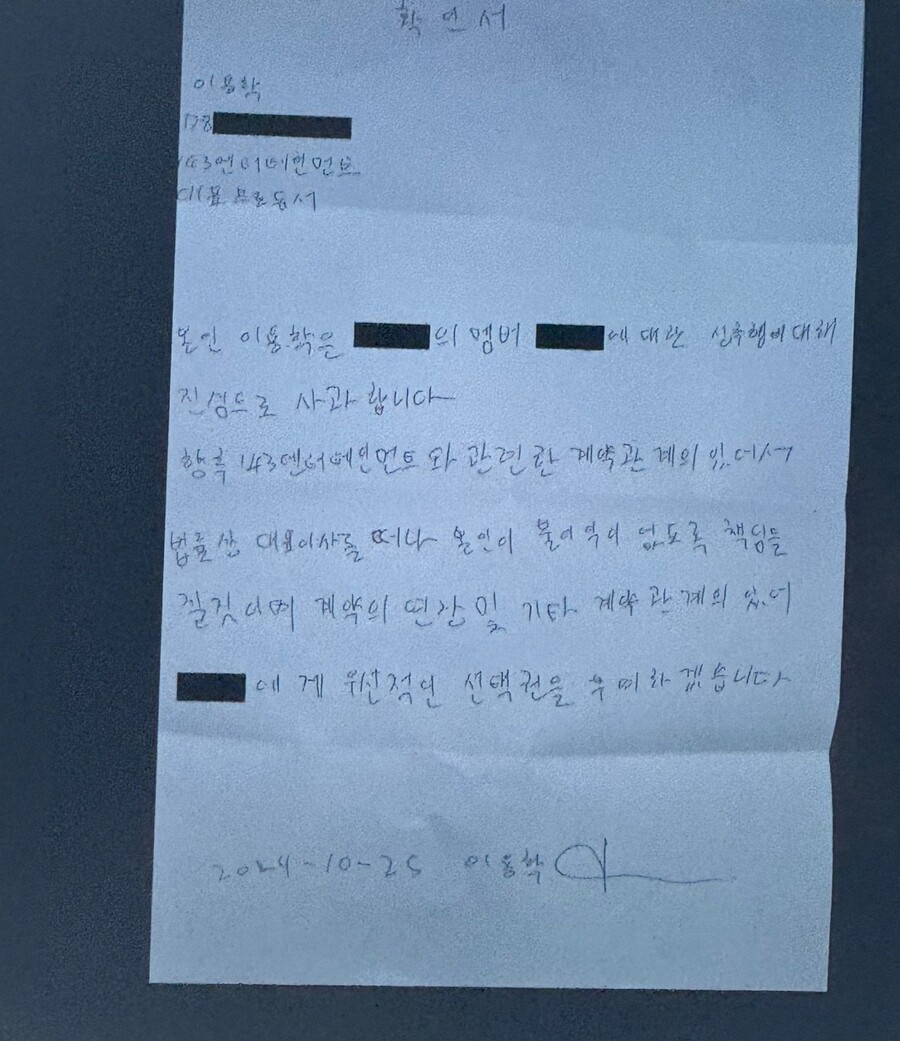 확인서
이용학
178
143엔터테인먼트
대표 프로듀서
본인 이용학은 의 멤버 에 대한 성추행에 대해
진심으로 사과합니다
향후 143엔터테인먼트와 관련한 계약관계의 있어서
법률상 대표이사를 떠나 본인이 불이익이 없도록 책임을
질것이며 계약의 연장 및 기타 계약관계의 있어
에게 우선적인 선택권을 부여하겠습니다
2024-10-25 이용학